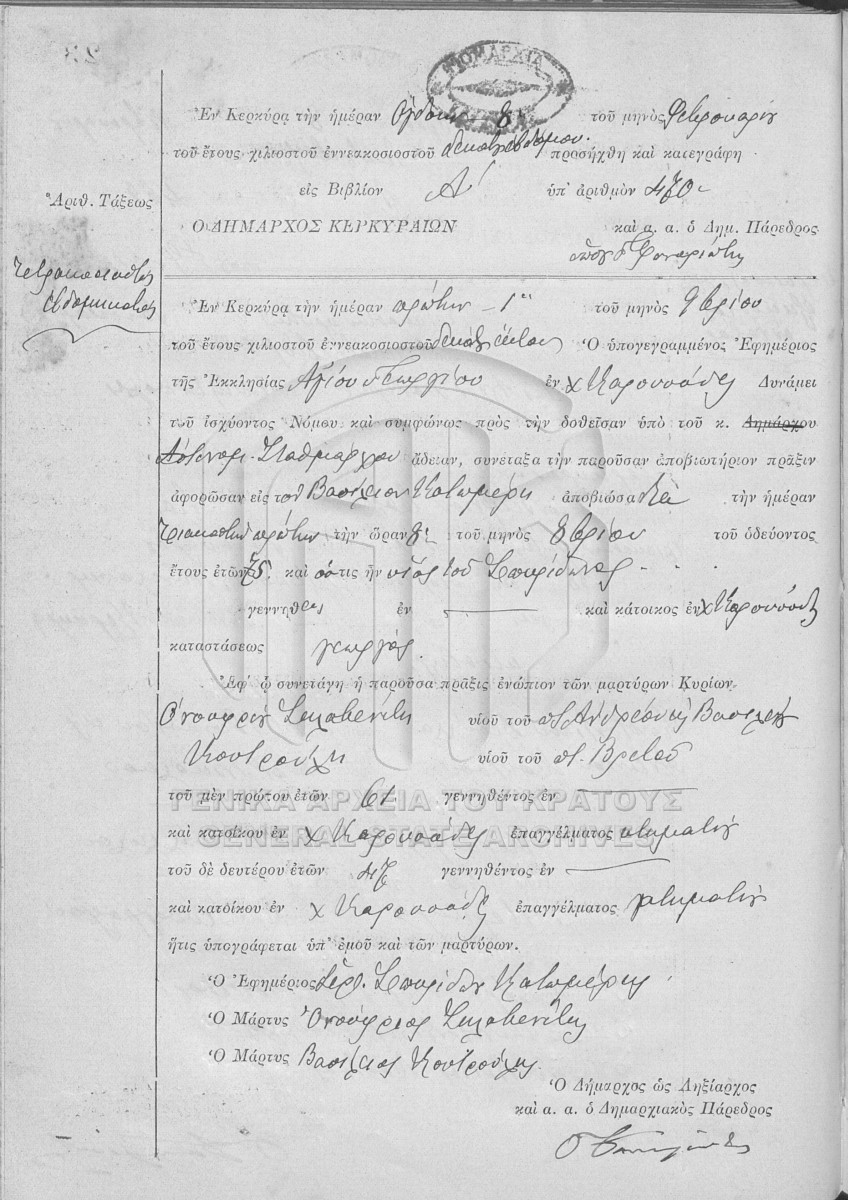 ΝΟΜΑΡΧΙΑ
Ἐν Κερκύρᾳ τὴν ἡμέραν ὀγδόην - 8ην τοῦ μηνὸς Φεβρουαρίου
τοῦ ἔτους χιλιοστοῦ ἐννεακοσιοστοῦ δεκάτου ἑβδόμου. προσήχθη καὶ κατεγράφη
εἰς Βιβλίον Α' ὑπ' ἀριθμὸν 470 -
Ἀριθ. Τάξεως
Ο ΔΗΜΑΡΧΟΣ ΚΕΡΚΥΡΑΙΩΝ καὶ α. α. ὁ Δημ. Πάρεδρος
Τετρακοσιοστὸς
Ἑβδομηκοστὸς
Ἐν Κερκύρᾳ τὴν ἡμέραν πρώτην - 1ην τοῦ μηνὸς 9βρίου
τοῦ ἔτους χιλιοστοῦ ἐννεακοσιοστοῦ δεκάτου ἕκτου Ὁ ὑπογεγραμμένος Ἐφημέριος
τῆς Ἐκκλησίας Ἁγίου Γεωργίου ἐν χ Καρουσάδες Δυνάμει
τοῦ ἰσχύοντος Νόμου καὶ συμφώνως πρὸς τὴν δοθεῖσαν ὑπὸ τοῦ κ. Δημάρχου
Ἀστυνομ. Σταθμάρχου ἄδειαν, συνέταξα τὴν παροῦσαν ἀποβιωτήριον πρᾶξιν
ἀφορῶσαν εἰς τὸν Βασίλειον Κατωμέρη ἀποβιώσαντα τὴν ἡμέραν
τριακοστὴν πρώτην τὴν ὥραν 8 τοῦ μηνὸς 8βρίου τοῦ ὁδεύοντος
ἔτους ἐτῶν 75 καὶ ὅστις ἦν υἱὸς τοῦ Σπυρίδωνος
γεννηθεὶς ἐν καὶ κάτοικος ἐν χ Καρουσάδες
καταστάσεως γεωργός.
Ἐφ' ᾧ συνετάγη ἡ παροῦσα πρᾶξις ἐνώπιον τῶν μαρτύρων Κυρίων.
Ὀνουφρίου Σκλαβενίτη υἱοῦ τοῦ π. Ἀνδρέου καὶ Βασιλείου
Κουτρούλη υἱοῦ τοῦ π. Βρετοῦ
τοῦ μὲν πρώτου ἐτῶν 61 γεννηθέντος ἐν
ΓΕΝΙΚΑ ΑΡΧΕΙΑ ΤΟΥ ΚΡΑΤΟΥΣ
καὶ κατοίκου ἐν χ Καρουσάδες ἐπαγγέλματος κτηματίου
GENERAL STATE ARCHIVES
τοῦ δὲ δευτέρου ἐτῶν 47 γεννηθέντος ἐν
καὶ κατοίκου ἐν χ Καρουσάδες ἐπαγγέλματος κτηματίου
ἥτις ὑπογράφεται ὑπ' ἐμοῦ καὶ τῶν μαρτύρων.
Ὁ Ἐφημέριος Ἱερ. Σπυρίδων Κατωμέρης
Ὁ Μάρτυς Ὀνούφριος Σκλαβενίτης
Ὁ Μάρτυς Βασίλειος Κουτρούλης
Ὁ Δήμαρχος ὡς Ληξίαρχος
καὶ α. α. ὁ Δημαρχιακὸς Πάρεδρος